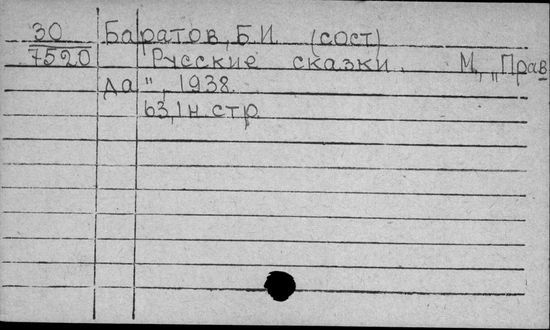 30 Баратов, Б.И. (сост)
7520 Русские сказки. М., „Прав
да", 1938.
63,1н. стр.